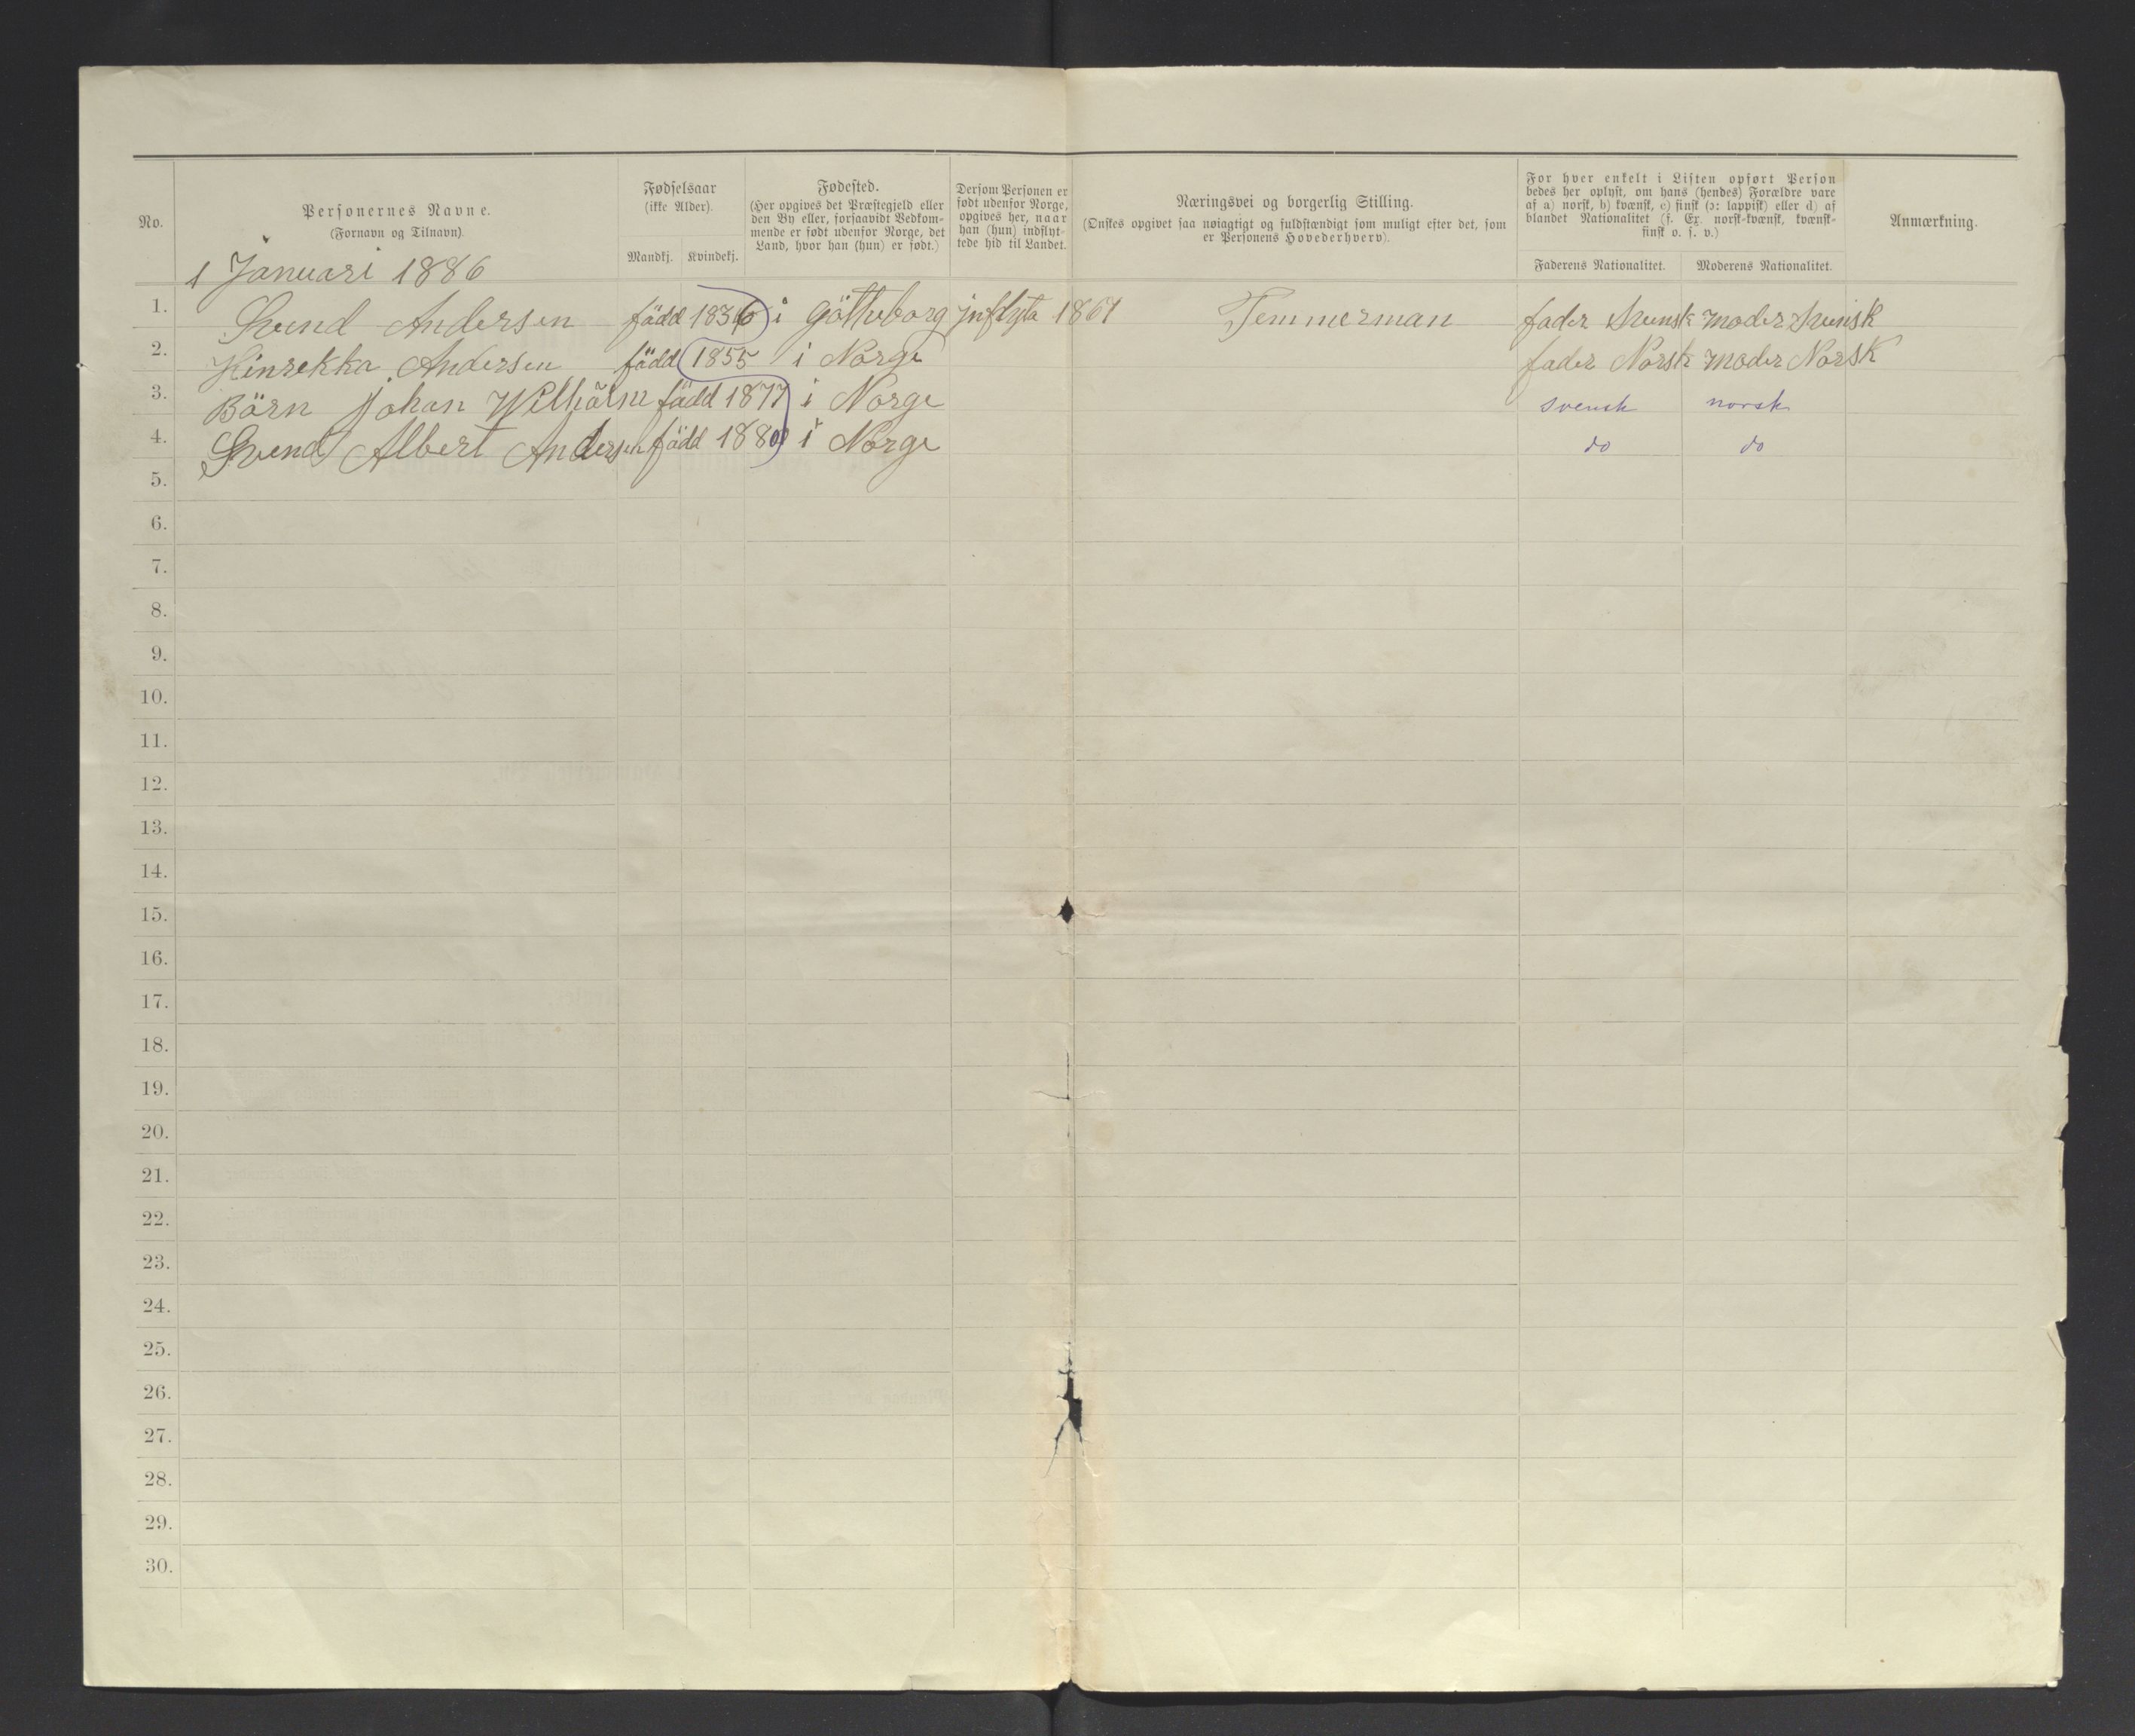 No.
Personernes Navne.
(Fornavn og Tilnavn).
Fødselsaar
(ikke Alder).
Mandkj. Kvindekj.
Fødested.
(Her opgives det Præstegjeld eller
den By eller, forsaavidt Vedkom-
mende er født udenfor Norge, det
Land, hvor han (hun) er født.)
Dersom Personen er
født udenfor Norge,
opgives her, naar
han (hun) indflyt-
tede hid til Landet.
Næringsvei og borgerlig Stilling.
(Ønskes opgivet saa nøiagtigt og fuldstændigt som muligt efter det, som
er Personens Hovederhverv).
For hver enkelt i Listen opført Person
bedes her oplyst, om hans (hendes) Forældre vare
af a) norsk, b) kvænsk, c) finsk (ɔ: lappisk) eller d) af
blandet Nationalitet (f. Ex. norsk-kvænsk, kvænsk-
finsk o. s. v.)
Faderens Nationalitet. Moderens Nationalitet.
Anmærkning.
1 Januari 1886
1. Svend Andersen född 1836 i Götheborg inflyta 1861 Temmerman fader Svensk moder Svensk
2. Hinrekka Andersen född 1855 i Norge fader Norsk moder Norsk
3. Börn Johan Wilhälm född 1877 i Norge svensk norsk
4. Svend Albert Andersen född 1880 i Norge do do
5.
6.
7.
8.
9.
10.
11.
12.
13.
14.
15.
16.
17.
18.
19.
20.
21.
22.
23.
24.
25.
26.
27.
28.
29.
30.